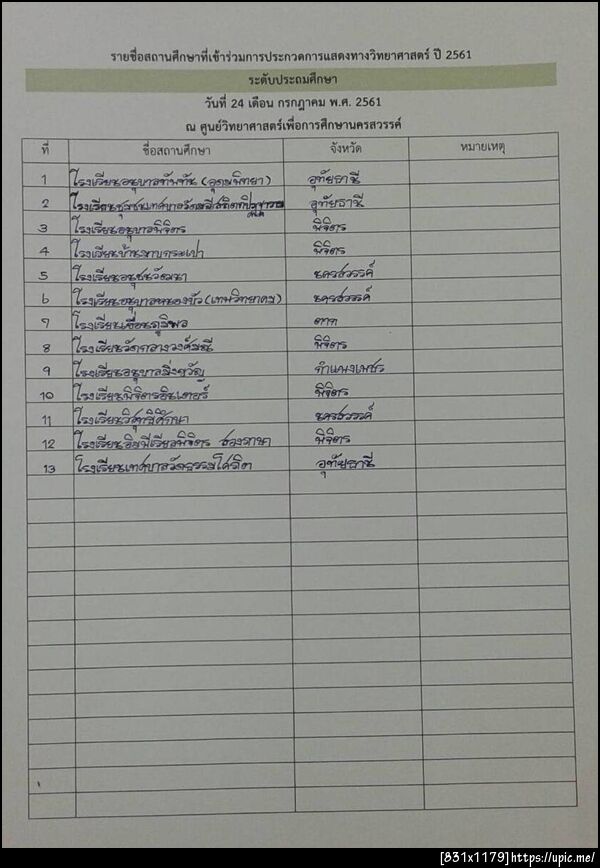 รายชื่อสถานศึกษาที่เข้าร่วมการประกวดการแสดงทางวิทยาศาสตร์ ปี 2561
ระดับประถมศึกษา
วันที่ 24 เดือน กรกฎาคม พ.ศ. 2561
ณ ศูนย์วิทยาศาสตร์เพื่อการศึกษานครสวรรค์
ที่ ชื่อสถานศึกษา จังหวัด หมายเหตุ
1 โรงเรียนอนุบาลทัพทัน (อุดมพิทยา) อุทัยธานี
2 อุทัยธานี
3 โรงเรียนอนุบาลพิจิตร พิจิตร
4 พิจิตร
5 โรงเรียนอนุชนวัฒนา นครสวรรค์
6 โรงเรียนอนุบาลหนองบัว (เทพวิทยาคม) นครสวรรค์
7 โรงเรียนเขื่อนภูมิพล ตาก
8 พิจิตร
9 โรงเรียนอนุบาลมิ่งขวัญ กำแพงเพชร
10 โรงเรียนพิจิตรอินเตอร์ พิจิตร
11 โรงเรียนวิสุทธิศึกษา นครสวรรค์
12 โรงเรียนอิมมีเรียลพิจิตร สองภาษา พิจิตร
13 โรงเรียนเทศบาลวัดธรรมโศภิต อุทัยธานี
[831x1179]https://upic.me/